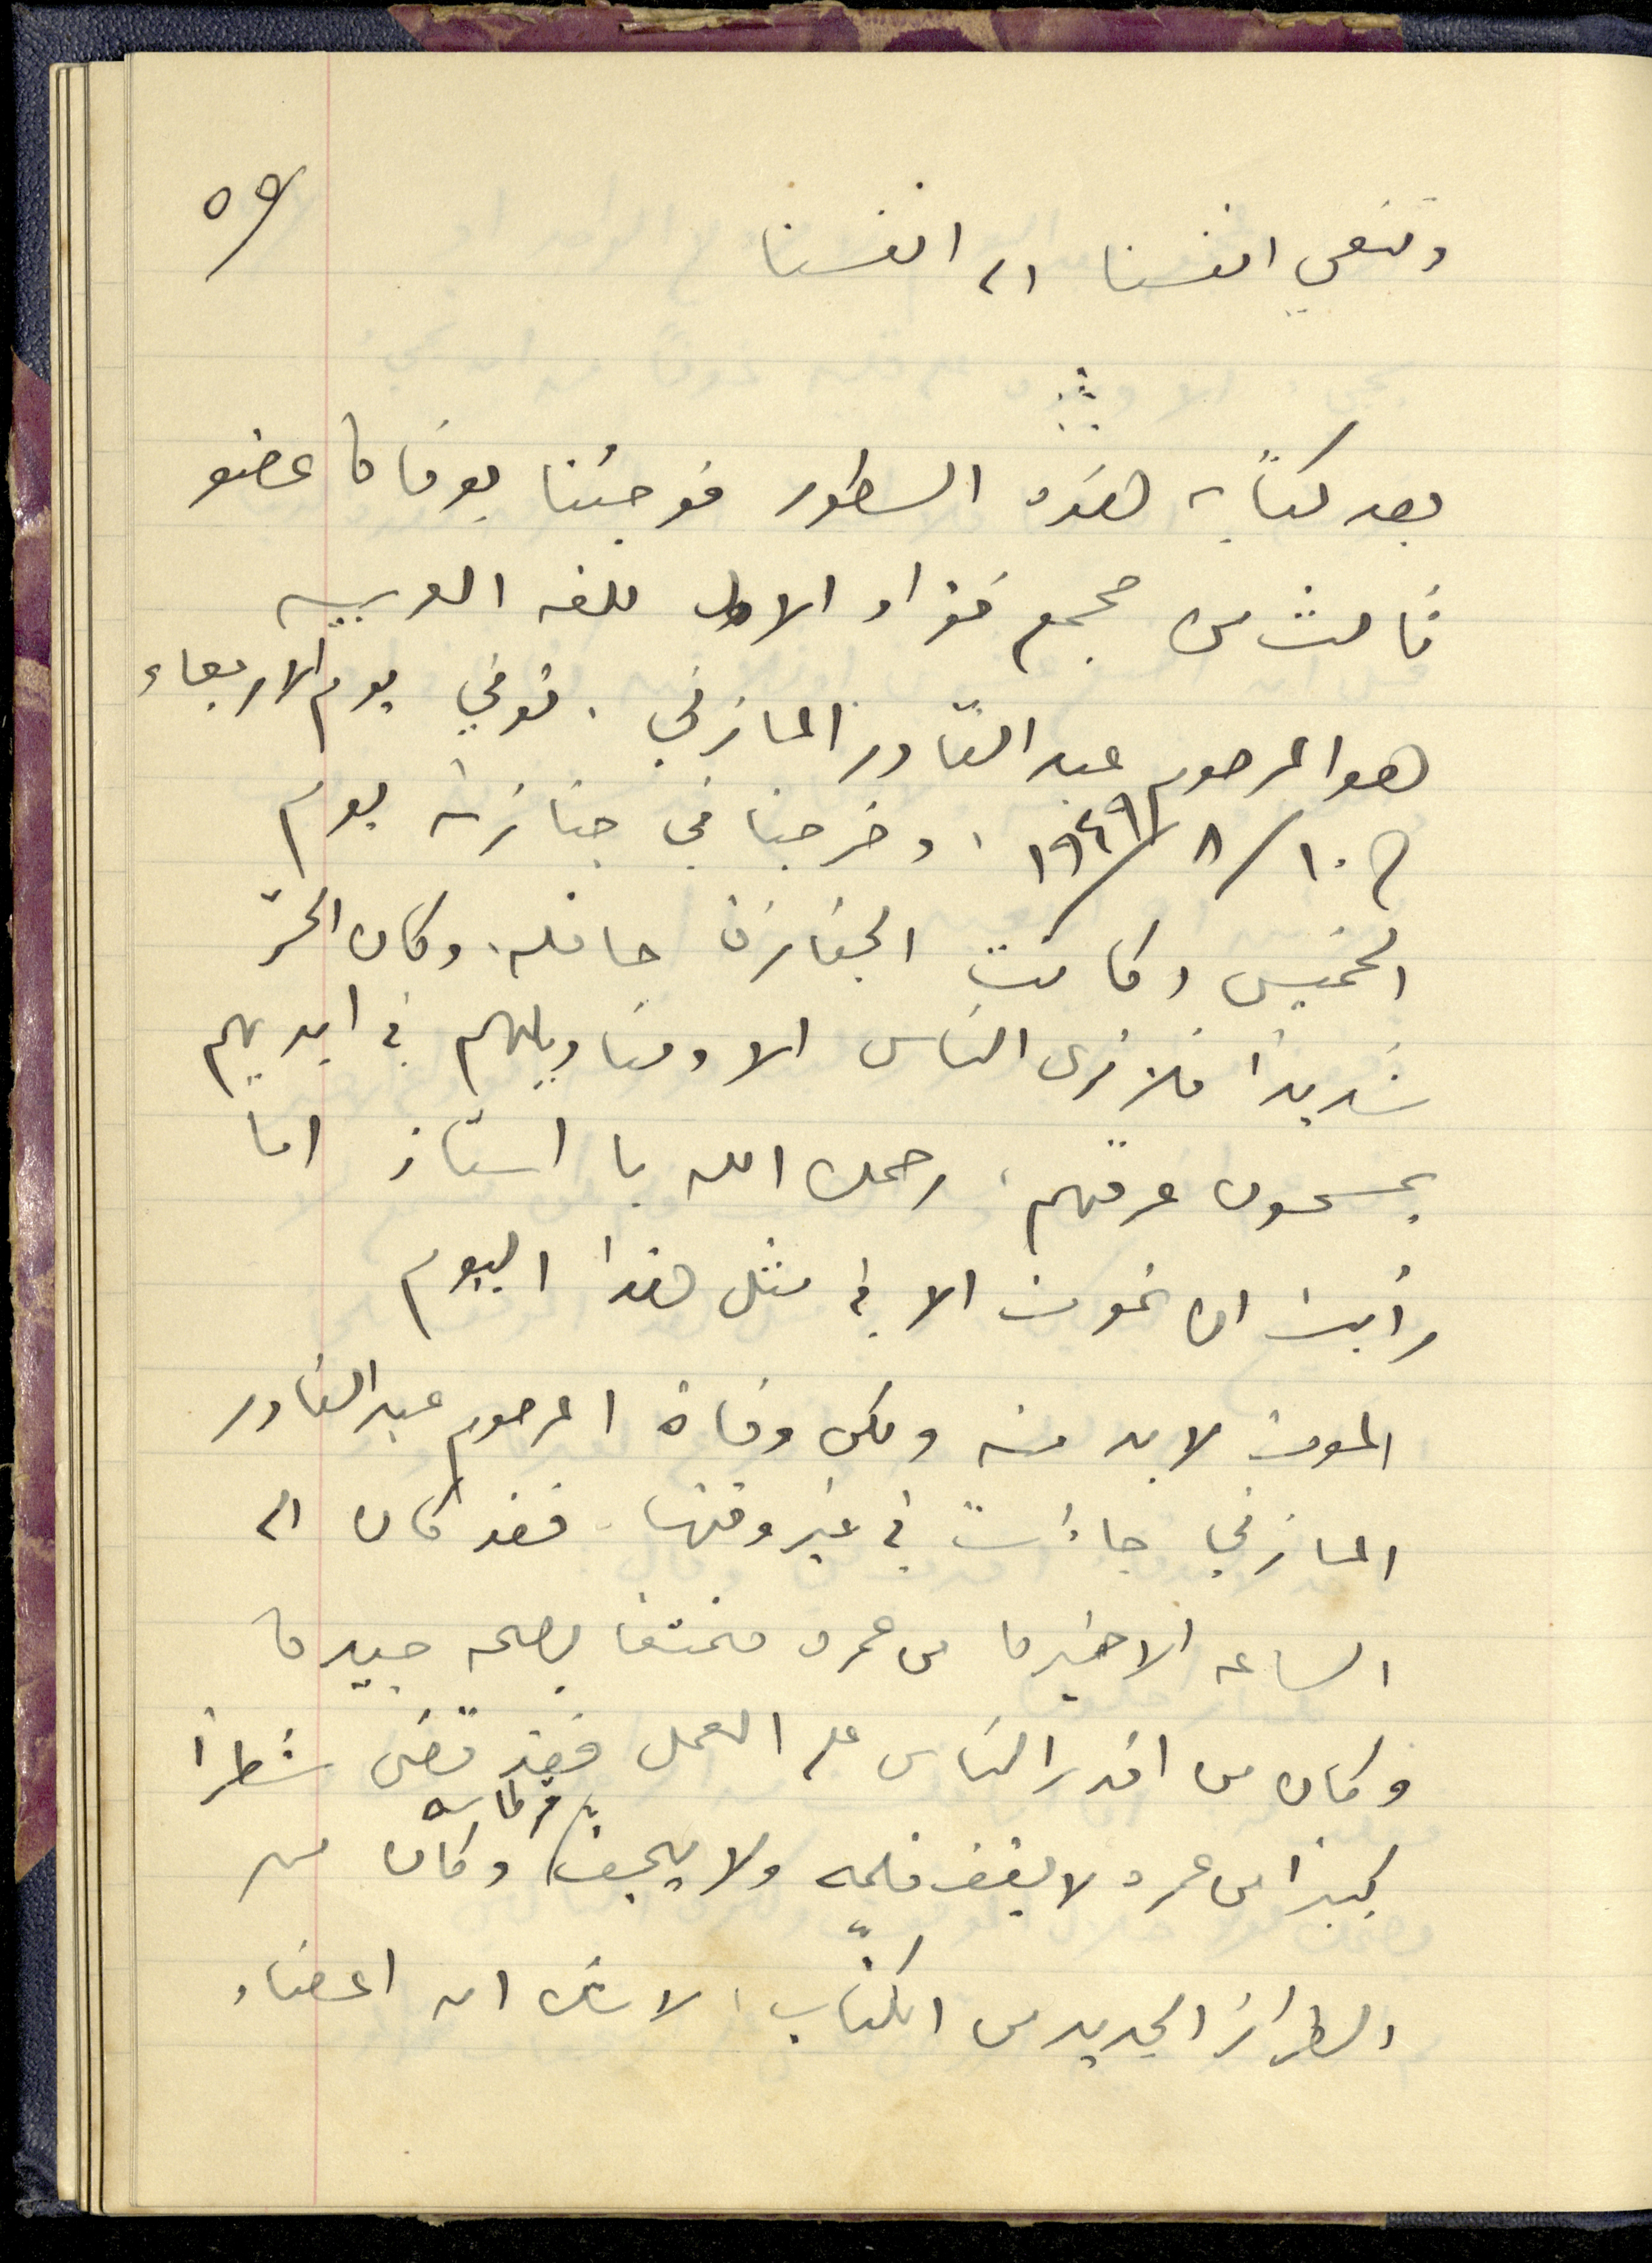 ٥٩
وننعي انفسنا الى انفسنا
بعد كتابة هذه السطور فوجئنا بوفاة عضو
ثالث من مجمع فؤاد الاول للغه العربيه
هو المرحوم عبد القادر المازني . توفي يوم الاربعاء
١٠/٨/١٩٤٩ ، وخرجنا في جنازته يوم
الخميس وكانت الجنازة حافله. وكان الحرّ
شديدًا فلا نرى الناس الا ومناديلهم في ايديهم
يمسحون عرقهم، رحمك الله يا استاذ اما
رأيت ان تموت الا في مثل هذا اليوم
الموت لا بد منه ولكن وفاة المرحوم عبد القادر
المازني جاءت في غير وقتها. فقد كان الى
الساعه الاخيرة من عمره متمتعا بصحه جيدة
وكان من اقدر الناس على العمل فقد قضى شطرًا
كبيرًا من عمره لا يقف قلمه ولا يجف قرطاسه وكان من
الطراز الجديد من الكتّاب، لا شك ان اعضاء